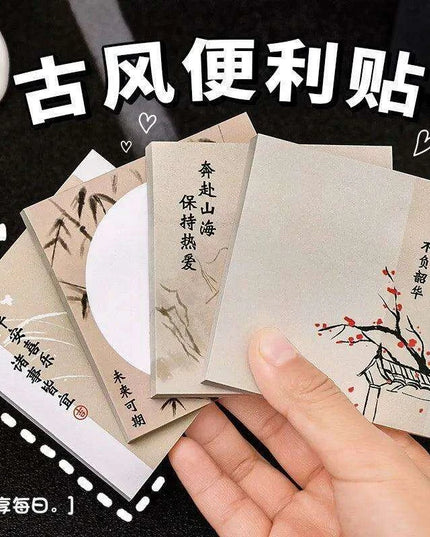 古风便利贴
奔赴山海
保持热爱
不负韶华
平安喜乐
诸事皆宜
未来可期
享每日。]